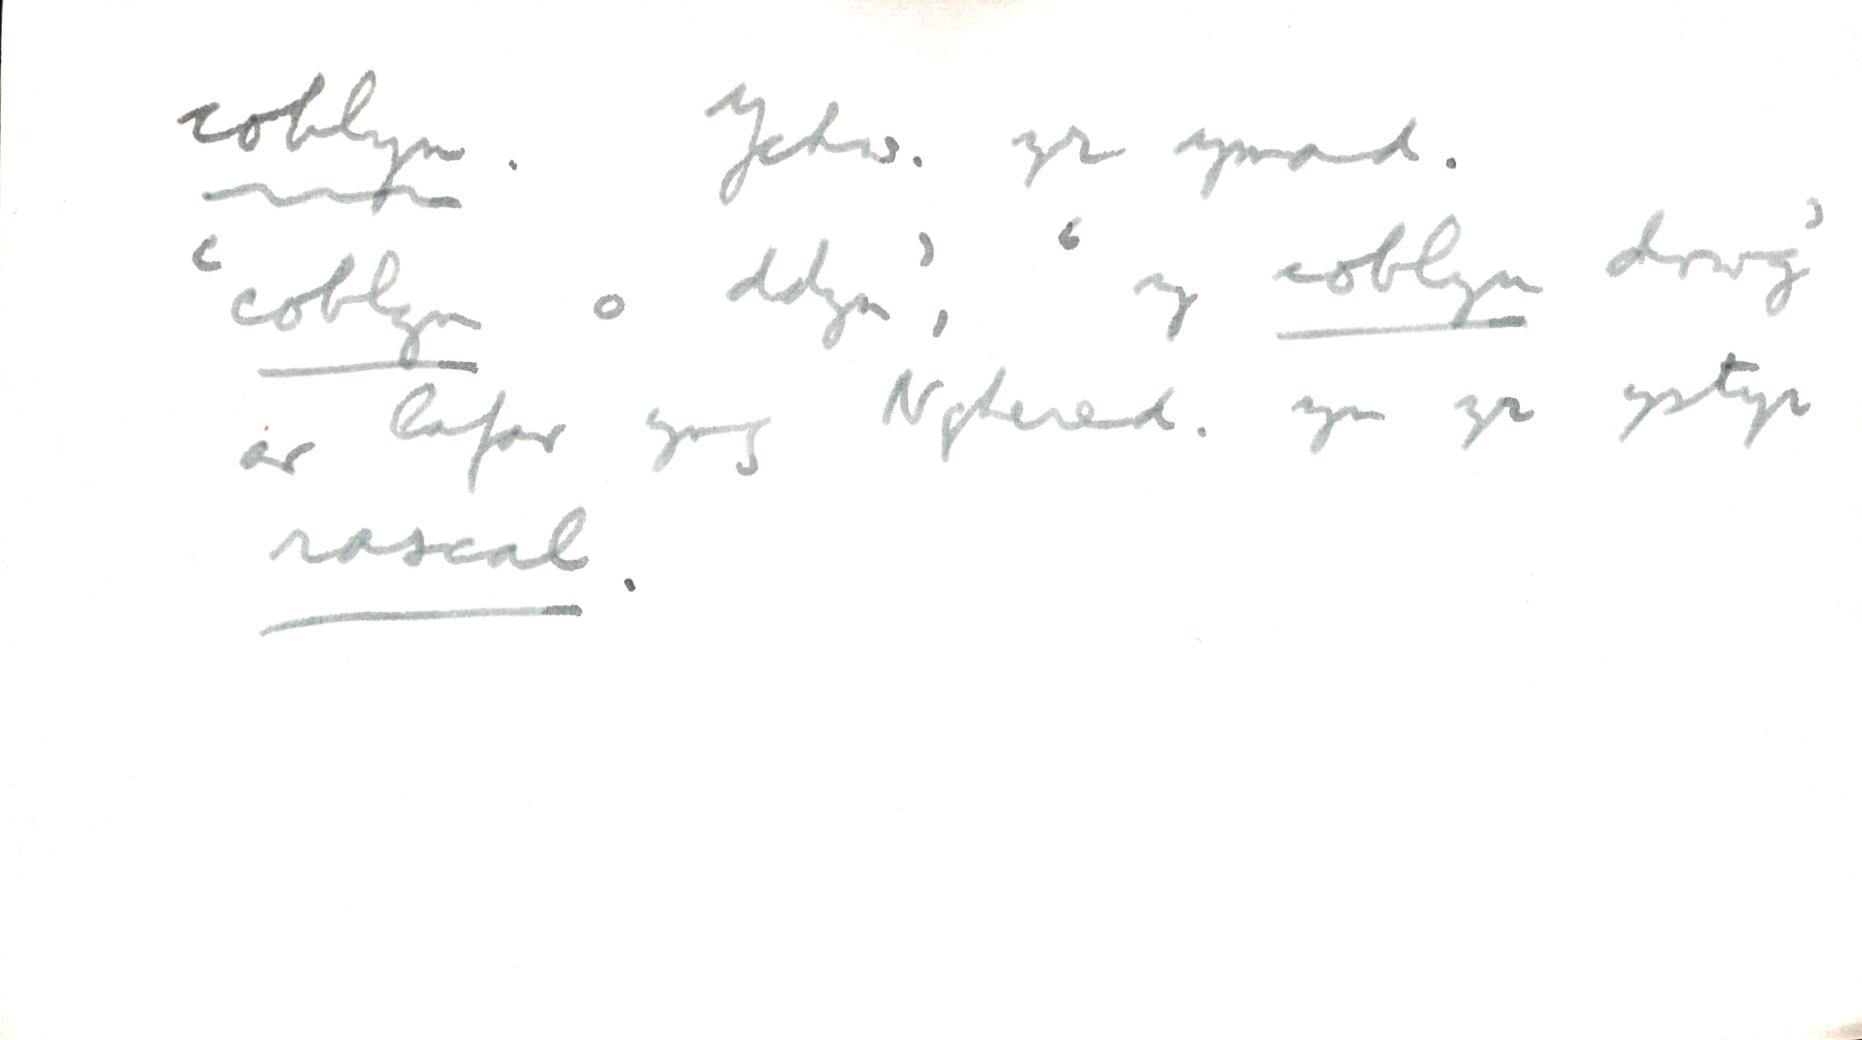 coblyn. Ychw. yr ymad.
‘coblyn o ddyn’, ‘y coblyn drwg’
ar lafar yng Nghered. yn yr ystyr
rascal.